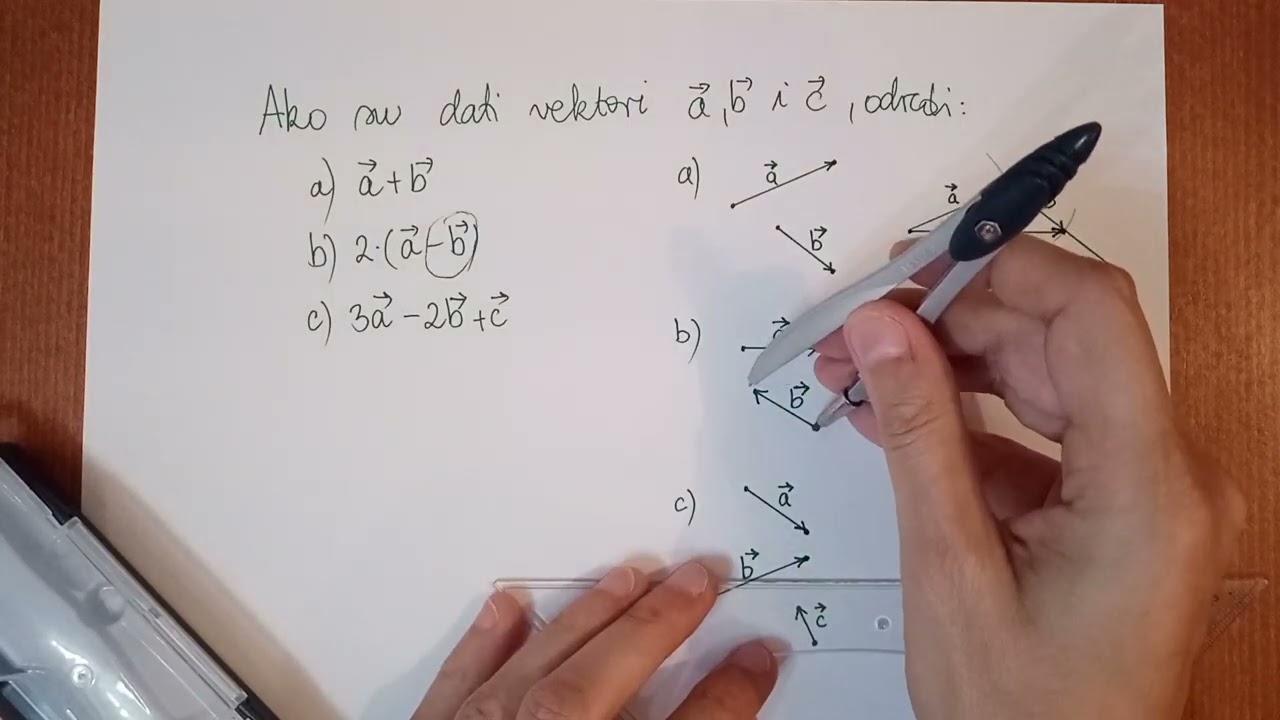 Ako su dati vektori a⃗, b⃗ i c⃗, odradi:
a) a⃗ + b⃗
b) 2·(a⃗ - b⃗)
c) 3a⃗ - 2b⃗ + c⃗
a) a⃗
b⃗
a⃗
b)
b⃗
c) a⃗
b⃗
c⃗